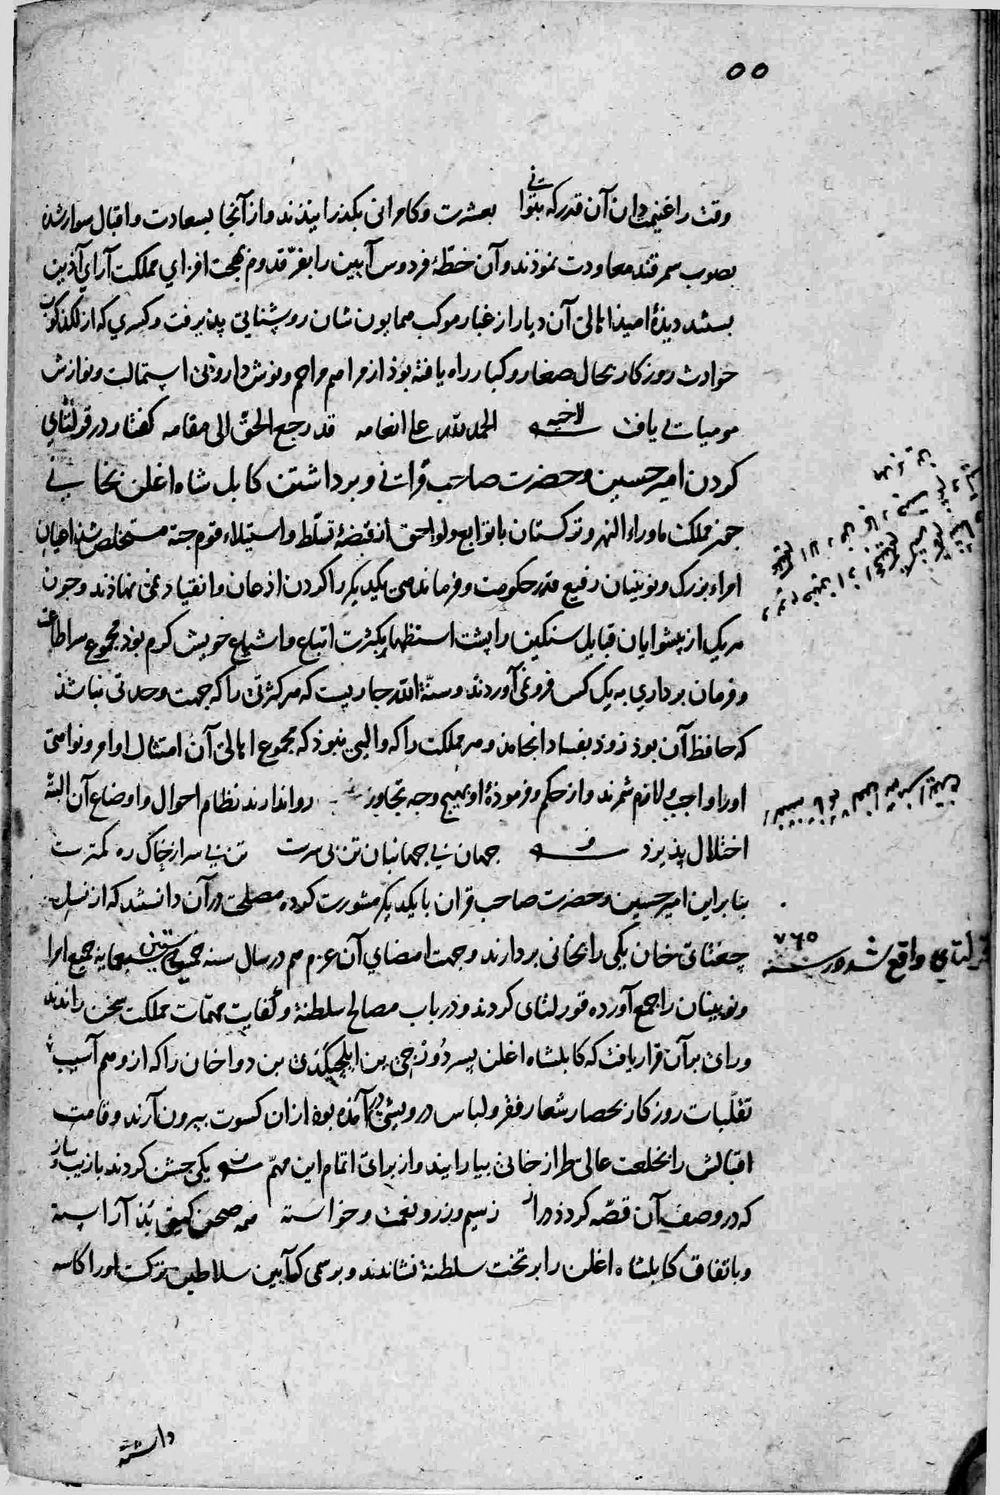 ۵۵
وقت را غنیمت دان آن قدر که بتوانی بعشرت و کامرانی بکذرانیدند و از آنجا بسعادت و اقبال سوار شده
بصوب سمرقند معاودت نمودند و آن خطّهٔ فردوس آیین را بفرّ قدوم بهجت افزای مملکت آرای آذین
بستند دیدهٔ امید اهالی آن دیار از غبار موکب همایون شان روشنایی پذیرفت و کسری که از لکدکوب
حوادث روزکار بحال صغار و کبار راه یافته بوذ از مراهم مراحم و نوش داروی استمالت و نوازش
مومیایی یافت لاخیه الحمد لله علی انعامه قد رجع الحق الی مقامه کفتار در قرلتای
کردن امیر حسین و حضرت صاحب قرانی و برداشتن کابل شاه اغلن بخانی
چون مملکت ماوراء النهر و ترکستان با توابع و لواحق از قبضهٔ تسلّط و استیلاء قوم جته مستخلص شد اعیان
امراء بزرک و نوینان رفیع قدر حکومت و فرماندهی یکدیکر را کردن اذعان و انقیاد نمی نهاذند و چون
هر یک از پیشوایان قبایل سنکین را پشت استظهار بکثرت اتباع و اشیاع خویش کرم بوذ مجموع سر اطاعت
و فرمان برداری به یک کس فرو نمی آوردند و سنّة الله جاریست که هر کثرتی را که جهت وحدتی نباشذ
که حافظ آن بوذ زوذ بفساد انجامد و هر مملکت را که والیی نبوذ که مجموع اهالی آن امتثال اوامر و نواهی
او را واجب و لازم شمرند و از حکم و فرمودهٔ او بهیچ وجه تجاوز روا ندارند نظام احوال و اوضاع آن البته
اختلال پذیرد جهان بی جهانبان تن بی سرست تن بی سر از خاک ره کمترست
بنا براین امیر حسین و حضرت صاحب قران با یکدیکر مشورت کرده مصلحت در آن دانستند که از نسل
چغتای خان یکی را بخانی بردارند و جهت امضای آن عزم هم در سال سنه خمس و ستین و سبعمایه جمیع امرا
و نوینان را جمع آورده قورلتای کردند و در باب مصالح سلطنة و کفایت مهمّات مملکت سخن راندند
و رای بر آن قرار یافت که کابلشاه اغلن پسر دُورجی بن ایلچیکدی بن دوا خان را که از وهم آسیب
تقلّبات روزکار بحصار شعار فقر و لباس درویشی در آمذه بود از ان کسوت بیرون آرند و قامت
اقبالش را بخلعت عالی طراز خانی بیارایند و از برای اتمام این مهمّ یکی جشن کردند با زیب و ساز
که در وصف آن قصّه کردذ دراز ز سیم و زر و نعمت و خواسته همه صحن کیتی بُذ آراسته
و باتفاق کابلشاه اغلن را بر تخت سلطنة نشاندند و برسمی که آیین سلاطین ترکست او را کاسه
داشته
قرلتای واقع شد در سنه ۷۶۵